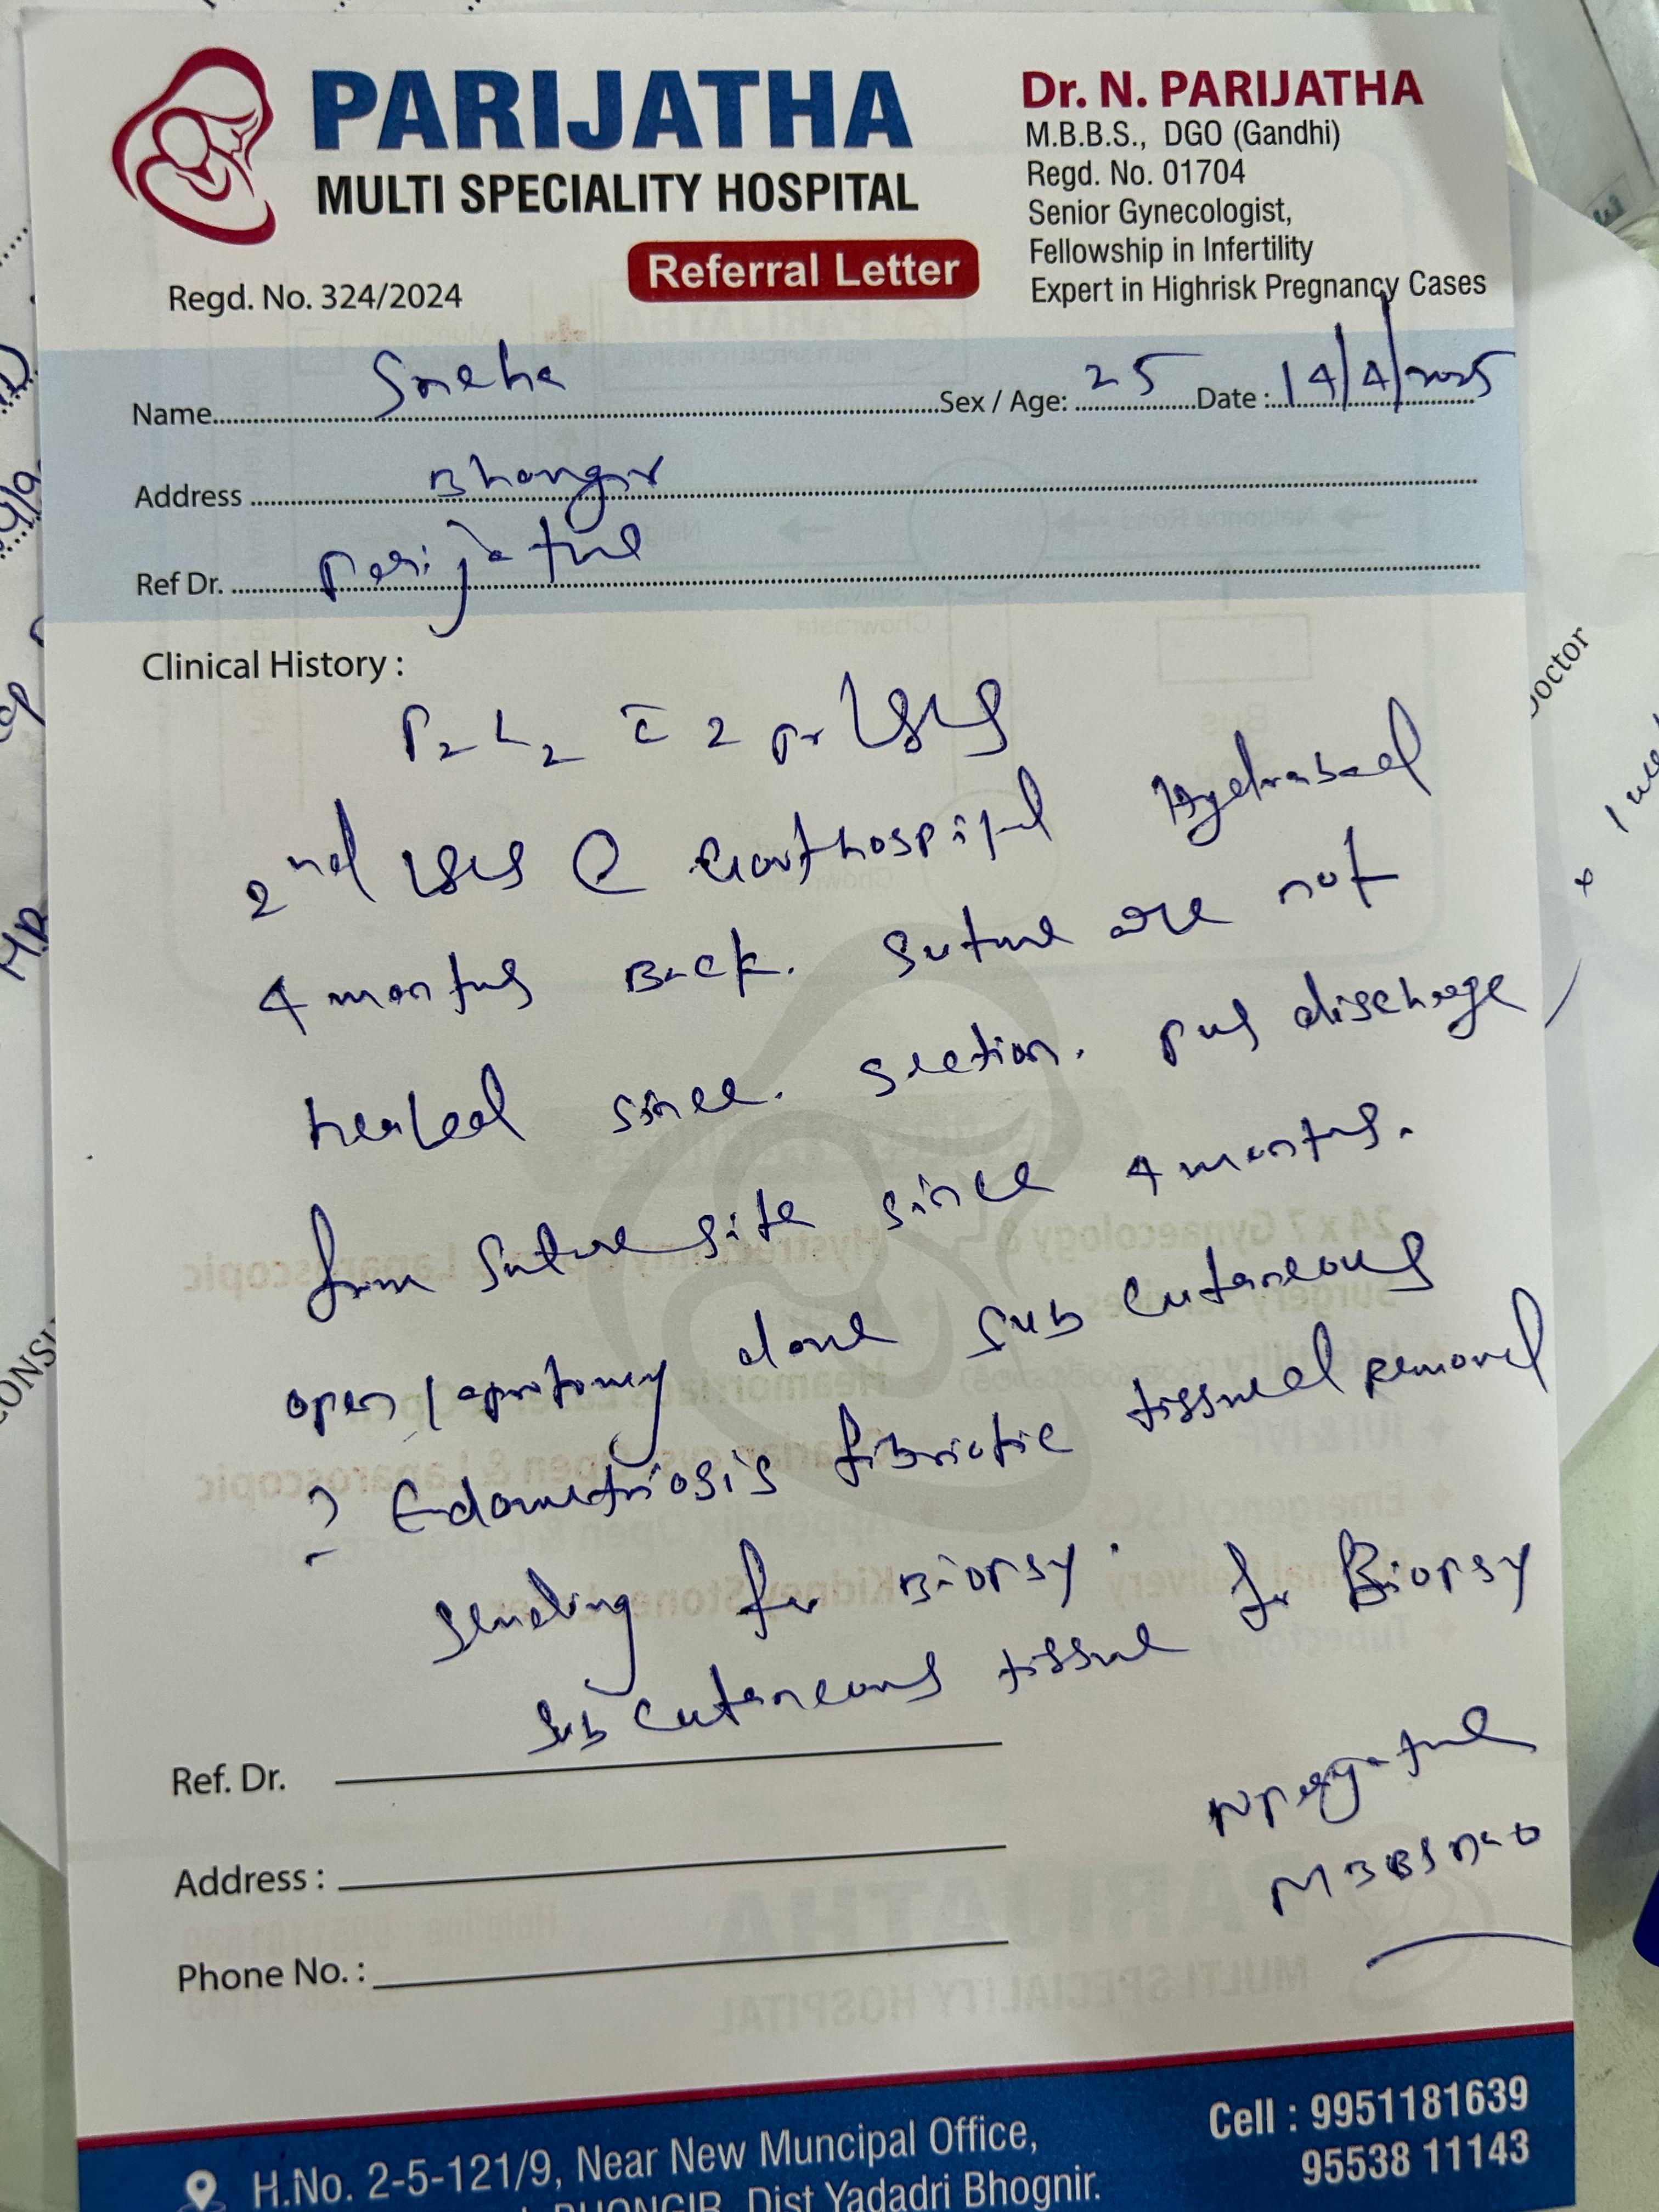 PARIJATHA
MULTI SPECIALITY HOSPITAL
Referral Letter
Regd. No. 324/2024
Dr. N. PARIJATHA
M.B.B.S., DGO (Gandhi)
Regd. No. 01704
Senior Gynecologist,
Fellowship in Infertility
Expert in Highrisk Pregnancy Cases
Name Sneha Sex / Age: 25 Date : 14/4/2025
Address Bhongir
Ref Dr. Parijatha
Clinical History :
P2 L2 c̄ 2 pr LSCS
2nd LSCS @ Govt hospital Hyderabad
4 months Back. Suture are not
healed since. section. pus discharge
from Suture site since 4 months.
open laprotomy done sub cutaneous
? Endometriosis fibriotic tissueal removel
sending for Biopsy.
Sub cutaneous tissue for Biopsy
Ref. Dr.
Address :
Phone No. :
N Parijatha
MBBS DGO
H.No. 2-5-121/9, Near New Muncipal Office,
BHONGIR, Dist Yadadri Bhognir.
Cell : 9951181639
95538 11143
Doctor